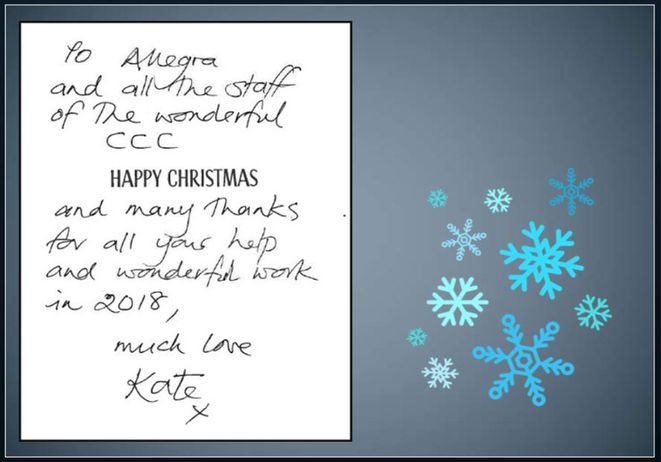 To Allegra
and all the staff
of The wonderful
CCC
HAPPY CHRISTMAS
and many Thanks
for all your help
and wonderful work
in 2018,
much love
Kate
x